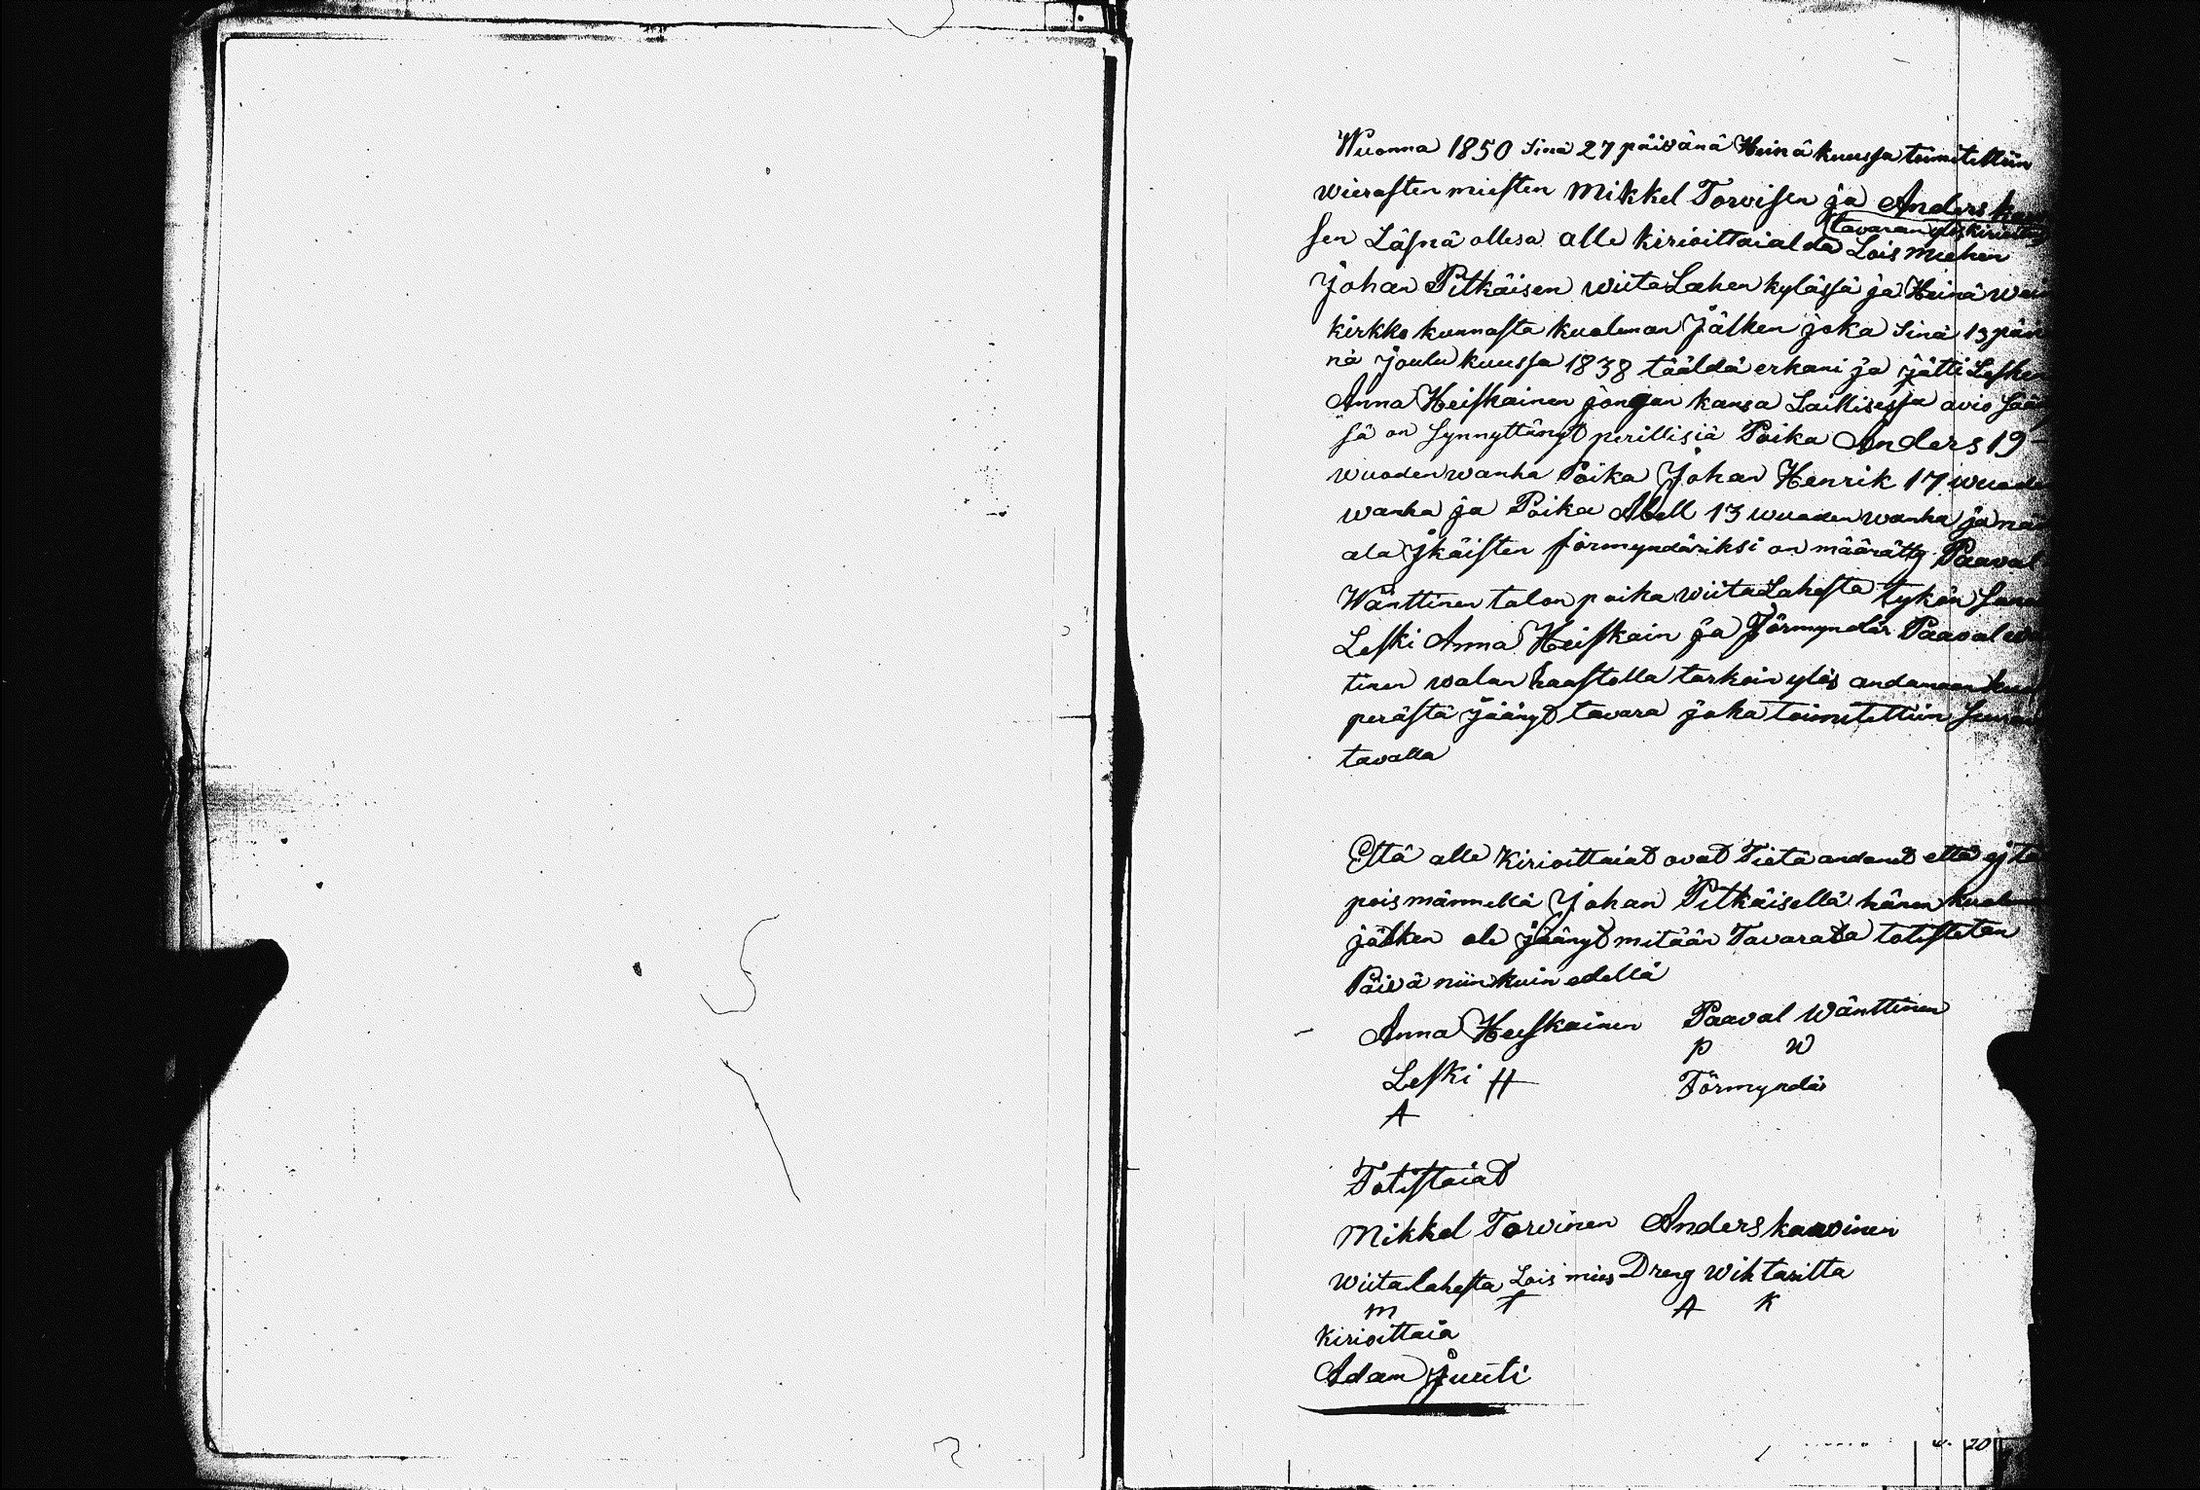 Wuonna 1850 Sinä 27 päivänä Heinäkuussa toimitettiin
wierasten miesten Mikkel Torvisen ja Anders
tavaran
sen Läsnä ollesa alle kirioittaialda Lois miehen
Johan Pitkäisen wiitaLahen kylässä ja Heinä
kirkko kunnasta kuoleman Jälken joka Sinä 13
nä Joulu kuussa 1838 tääldä erkani ja jätti
Anna Heiskainen jongan kansa Laillisessa avio
sä on Synnyttänyt perillisiä Poika Anders 19
wuoden wanha Poika Johan Henrik 17
wanha ja Poika Abell 13 wuoden wanha ja
ala Jkäisten förmyndäriksi on määrätty Paaval
Wänttinen talon poika wiitaLahesta tykön
Leski Anna Heiskain ja Förmyndär Paaval
tinen walan haastolla tarkoin ylös andamaan
perästä Jäänyt tavara joka toimitettiin
tavalla
Että alle Kirioittaiat ovat Tietä andanet että ej
pois männellä Johan Pitkäisellä hänen
jälken ole Jäänyt mitään Tavarata totistetan
Päivä niinkuin edellä
Anna Heiskainen Paaval Wänttinen
P W
Leski H Förmyndär
A
Totistaiat
Mikkel Torvinen Anders kaavinen
Wiitalahesta Lois mies Dreng Wihtasilta
M T A K
Kirioittaia
Adam Juuti
20